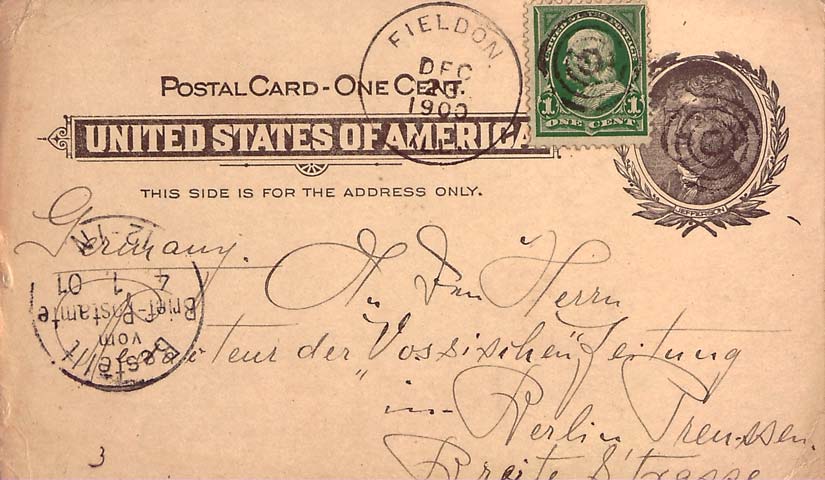 FIELDON
DEC
1900
ILL.
UNITED STATES POSTAGE
1 1
ONE CENT
POSTAL CARD - ONE CENT.
UNITED STATES OF AMERICA
THIS SIDE IS FOR THE ADDRESS ONLY.
JEFFERSON
Germany.
An Den Herrn
der "Vossischen" Zeitung
in Berlin Preussen.
Breite Strasse
Bestellt
vom
Brief-Postamte
4. 1. 01
12-1N
3